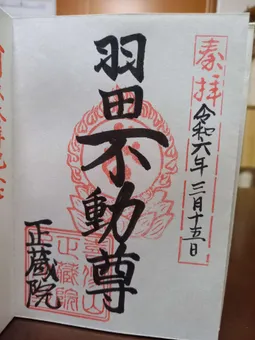 奉拝
令和六年 三月十五日
羽田不動尊
正蔵院
正蔵院